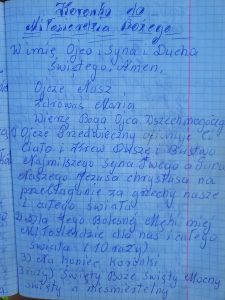 Koronka do
Miłosierdzia Bożego
W imię Ojca i Syna i Ducha
Świętego. Amen.
Ojcze Nasz
Zdrowaś Maria
Wierzę Boga Ojca Wszechmogącego
1) Ojcze Przedwieczny ofiaruję Ci
Ciało i Krew Duszę i Bóstwo
Najmilszego Syna Twego a Pana
Naszego Jezusa Chrystusa na
przebłaganie za grzechy nasze
i całego świata
2) Dla Jego Bolesnej Męki miej
Miłosierdzie dla nas i całego
świata (10 razy)
3) Na koniec koronki
3 razy) Święty Boże Święty Mocny
Święty a nieśmiertelny